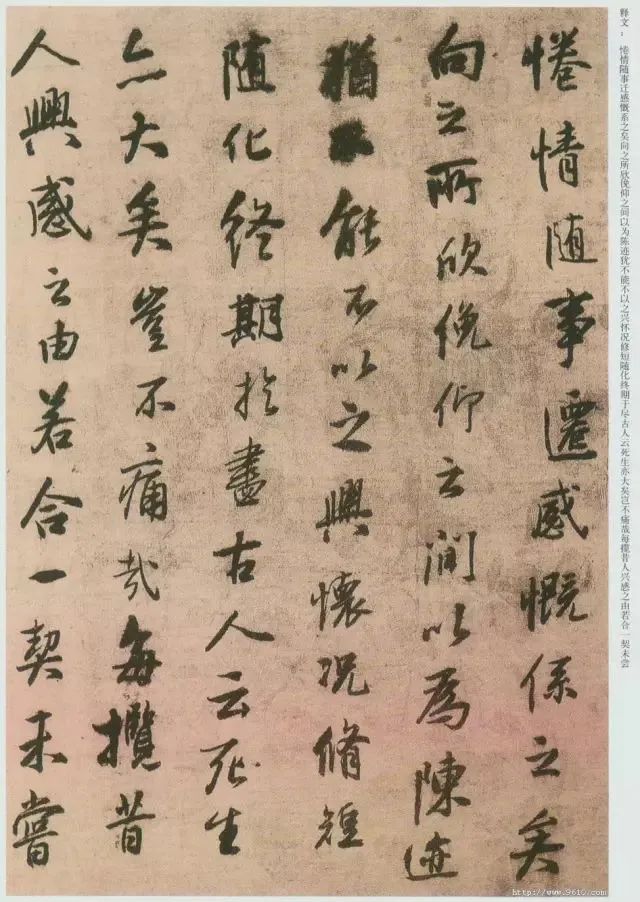 释文：　惓情随事迁感慨系之矣向之所欣俛仰之间以为陈迹犹不能不以之兴怀况修短随化终期于尽古人云死生亦大矣岂不痛哉每揽昔人兴感之由若合一契未尝
惓情随事遷感慨係之矣
向之所欣俛仰之間以為陳迹
猶不能不以之興懷況脩短
随化終期於盡古人云死生
亦大矣豈不痛哉每攬昔
人興感之由若合一契未嘗
http://www.9610.com